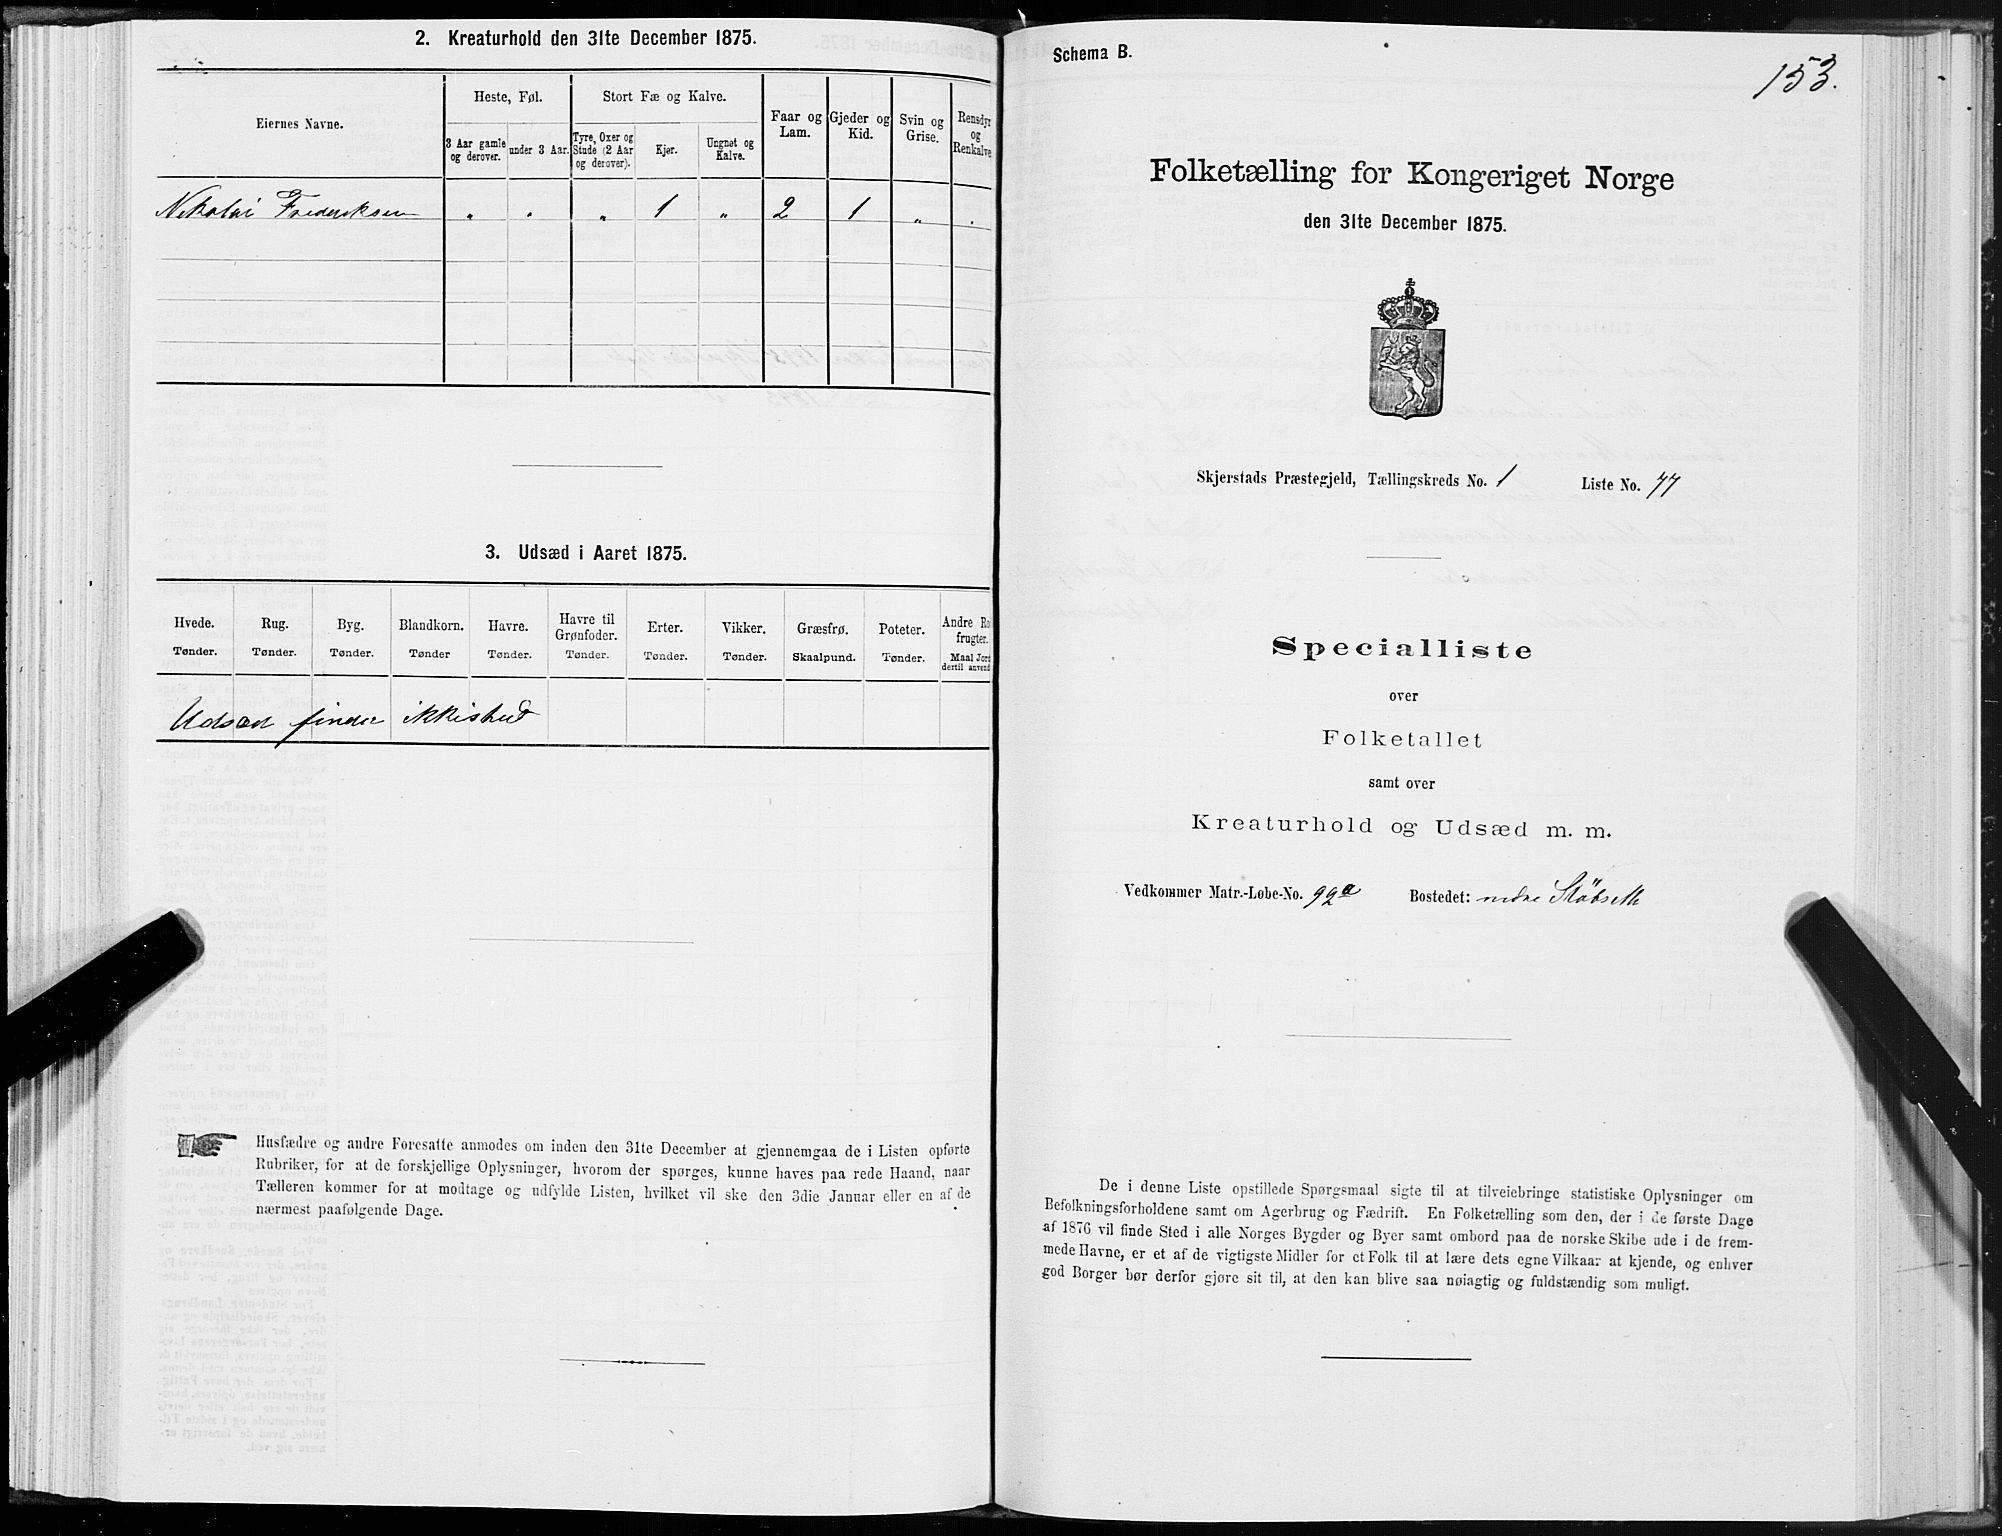 2. Kreaturhold den 31te December 1875.
Eiernes Navne.
Heste, Føl.
Stort Fæ og Kalve.
Faar og Lam.
Gjeder og Kid.
Svin og Grise.
Rensdyr og Renkalve
3 Aar gamle og derover.
under 3 Aar.
Tyre, Oxer og Stude (2 Aar og derover).
Kjør.
Ungnøt og Kalve.
Nikolai Frederiksen " " " 1 " 2 1 " "
3. Udsæd i Aaret 1875.
Hvede. Rug. Byg. Blandkorn. Havre. Havre til Grønfoder. Erter. Vikker. Græsfrø. Poteter. Andre Ro frugter.
Tønder. Tønder. Tønder. Tønder Tønder. Tønder. Tønder. Tønder. Skaalpund. Tønder. Maal Jord dertil anvend
Udsæd finder ikke sted
Husfædre og andre Foresatte anmodes om inden den 31te December at gjennemgaa de i Listen opførte
Rubriker, for at de forskjellige Oplysninger, hvorom der spørges, kunne haves paa rede Haand, naar
Tælleren kommer for at modtage og udfylde Listen, hvilket vil ske den 3die Januar eller en af de
nærmest paafølgende Dage.
Schema B.
153.
Folketælling for Kongeriget Norge
den 31te December 1875.
Skjerstads Præstegjeld, Tællingskreds No. 1 Liste No. 77
Specialliste
over
Folketallet
samt over
Kreaturhold og Udsæd m. m.
Vedkommer Matr.-Løbe-No. 99a Bostedet: nedre Støbseth
De i denne Liste opstillede Spørgsmaal sigte til at tilveiebringe statistiske Oplysninger om
Befolkningsforholdene samt om Agerbrug og Fædrift. En Folketælling som den, der i de første Dage
af 1876 vil finde Sted i alle Norges Bygder og Byer samt ombord paa de norske Skibe ude i de frem-
mede Havne, er et af de vigtigste Midler for et Folk til at lære dets egne Vilkaar at kjende, og enhver
god Borger bør derfor gjøre sit til, at den kan blive saa nøiagtig og fuldstændig som muligt.